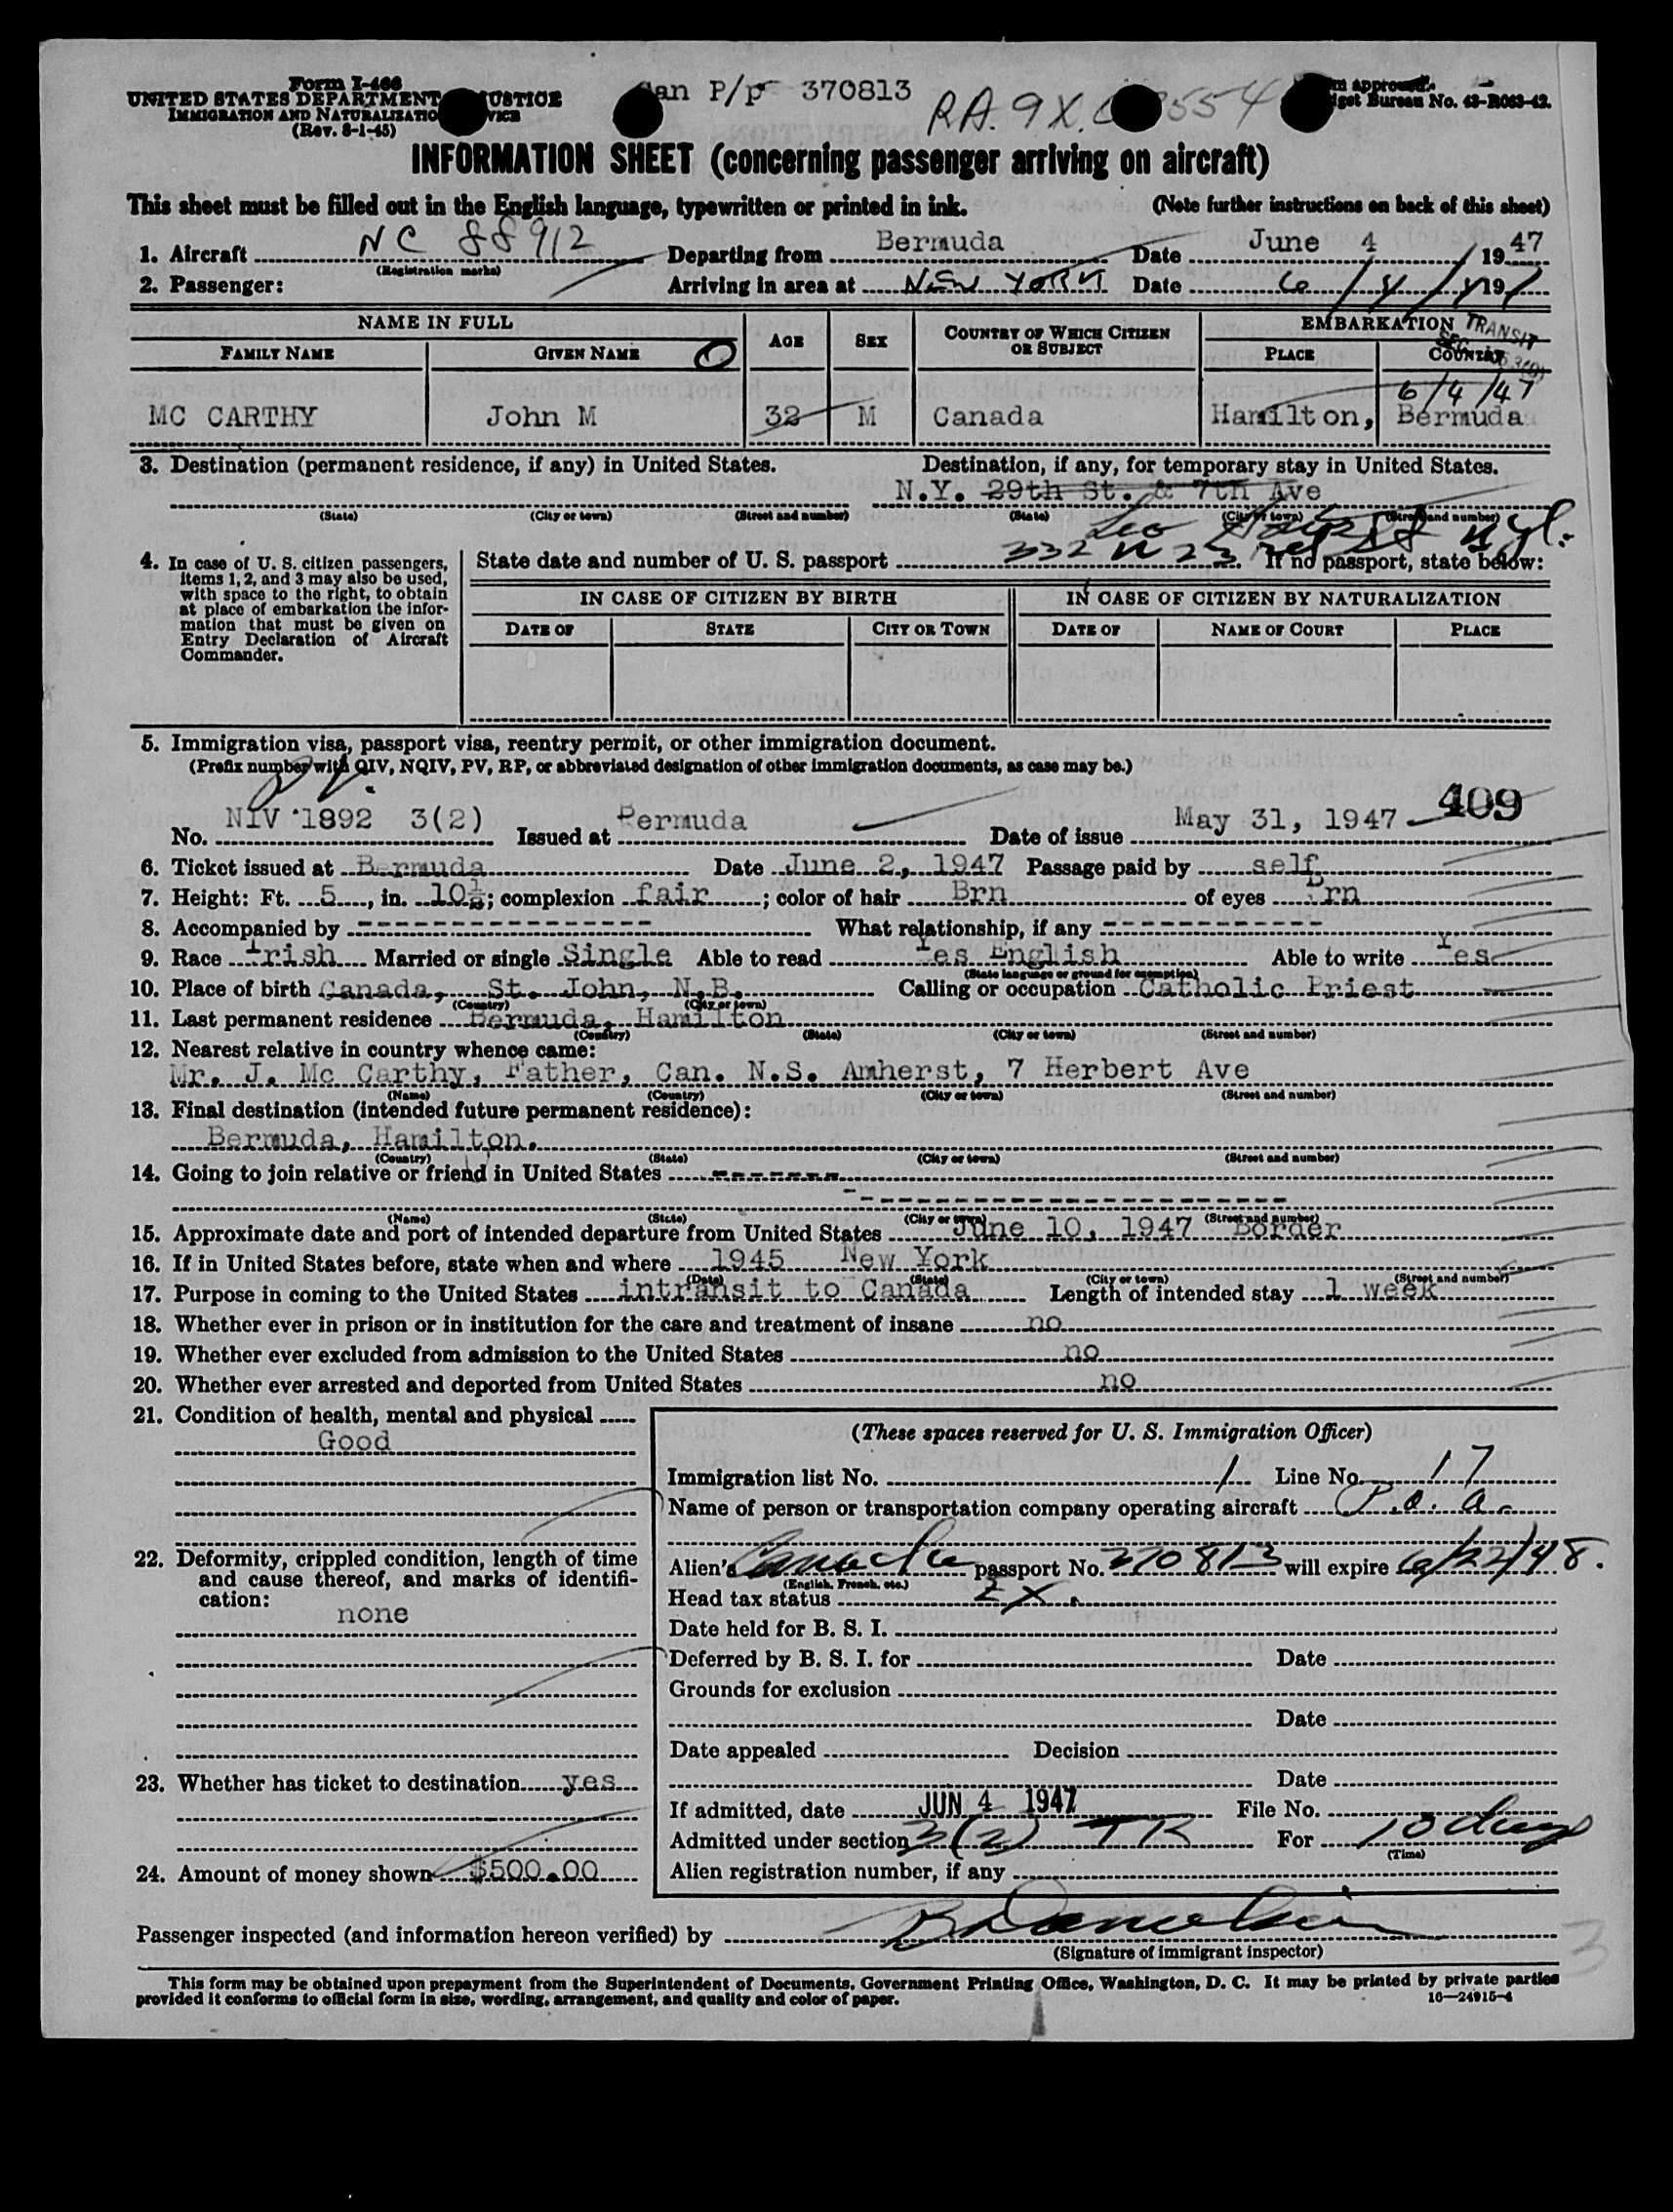 Form I-466
UNITED STATES DEPARTMENT USTICE
IMMIGRATION AND NATURALIZATIO VICE
(Rev. 8-1-45)
Can P/p 370813
RA. 9X. 554
m approved.
get Bureau No. 43-R063-42.
INFORMATION SHEET (concerning passenger arriving on aircraft)
This sheet must be filled out in the English language, typewritten or printed in ink. (Note further instructions on back of this sheet)
1. Aircraft NC 88912 Departing from Bermuda Date June 4 1947
(Registration marks)
2. Passenger: Arriving in area at NEW YORK Date 6/4/ 19
NAME IN FULL AGE SEX COUNTRY OF WHICH CITIZEN OR SUBJECT EMBARKATION TRANSIT
FAMILY NAME GIVEN NAME O PLACE COUNTRY
6/4/47
MC CARTHY John M 32 M Canada Hamilton, Bermuda
3. Destination (permanent residence, if any) in United States. Destination, if any, for temporary stay in United States.
N.Y. 29th St. & 7th Ave
(State) (City or town) (Street and number) (State) (City or town) (Street and number)
Leo St NYC.
332 W 23
4. In case of U. S. citizen passengers, items 1, 2, and 3 may also be used, with space to the right, to obtain at place of embarkation the information that must be given on Entry Declaration of Aircraft Commander.
State date and number of U. S. passport If no passport, state below:
IN CASE OF CITIZEN BY BIRTH IN CASE OF CITIZEN BY NATURALIZATION
DATE OF STATE CITY OR TOWN DATE OF NAME OF COURT PLACE
5. Immigration visa, passport visa, reentry permit, or other immigration document.
(Prefix number with QIV, NQIV, PV, RP, or abbreviated designation of other immigration documents, as case may be.)
409
No. NIV 1892 3(2) Issued at Bermuda Date of issue May 31, 1947
6. Ticket issued at Bermuda Date June 2, 1947 Passage paid by self
7. Height: Ft. 5, in. 10½; complexion fair; color of hair Brn of eyes Brn
8. Accompanied by ---------------- What relationship, if any ------------
9. Race Irish Married or single Single Able to read Yes English Able to write Yes
(State language or ground for exemption)
10. Place of birth Canada, St. John, N.B. Calling or occupation Catholic Priest
(Country) (City or town)
11. Last permanent residence Bermuda, Hamilton
(Country) (State) (City or town) (Street and number)
12. Nearest relative in country whence came:
Mr. J. Mc Carthy, Father, Can. N.S. Amherst, 7 Herbert Ave
(Name) (Country) (City or town) (Street and number)
13. Final destination (intended future permanent residence):
Bermuda, Hamilton.
(Country) (State) (City or town) (Street and number)
14. Going to join relative or friend in United States -------
-----------------------
(Name) (State) (City or town) (Street and number)
15. Approximate date and port of intended departure from United States June 10, 1947 Border
16. If in United States before, state when and where 1945 New York
(Date) (State) (City or town) (Street and number)
17. Purpose in coming to the United States intransit to Canada Length of intended stay 1 week
18. Whether ever in prison or in institution for the care and treatment of insane no
19. Whether ever excluded from admission to the United States no
20. Whether ever arrested and deported from United States no
21. Condition of health, mental and physical
Good
22. Deformity, crippled condition, length of time and cause thereof, and marks of identification:
none
23. Whether has ticket to destination yes
24. Amount of money shown $500.00
(These spaces reserved for U. S. Immigration Officer)
Immigration list No. 1 Line No. 17
Name of person or transportation company operating aircraft P.a.a.
Alien's Canada passport No. 370813 will expire 6/22/48.
(English, French, etc.)
Head tax status EX.
Date held for B. S. I.
Deferred by B. S. I. for Date
Grounds for exclusion
Date
Date appealed Decision
Date
If admitted, date JUN 4 1947 File No.
Admitted under section 3(2) TR For 10 days
(Time)
Alien registration number, if any
Passenger inspected (and information hereon verified) by
(Signature of immigrant inspector)
3
This form may be obtained upon prepayment from the Superintendent of Documents, Government Printing Office, Washington, D. C. It may be printed by private parties
provided it conforms to official form in size, wording, arrangement, and quality and color of paper. 16—24915-4